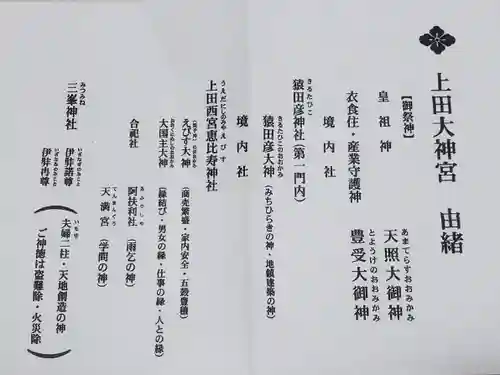 上田大神宮　由緒
【御祭神】
皇祖神　天照大御神
あまてらすおおみかみ
衣食住・産業守護神　豊受大御神
とようけのおおみかみ
境内社
さるたひこ
猿田彦神社（第一門内）
さるたひこのおおかみ
猿田彦大神（みちひらきの神・地鎮建築の神）
境内社
うえだにしのみやえびす
上田西宮恵比寿神社
えびす大神（商売繁盛・家内安全・五穀豊穣）
おおくにぬしのおおかみ
大国主大神（縁結び・男女の縁・仕事の縁・人との縁）
合祀社
あふりしゃ
阿扶利社（雨乞の神）
てんまんぐう
天満宮（学問の神）
みつみね
三峯神社
いざなぎのみこと
伊弉諾尊
いざなみのみこと
伊弉冉尊
いもせ
夫婦二柱・天地創造の神
ご神徳は盗難除・火災除